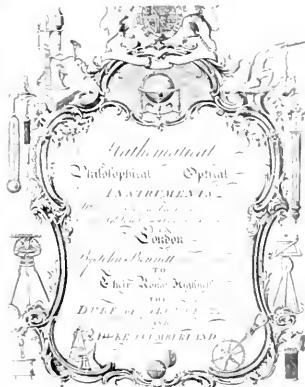 Mathematical
Philosophical Optical
INSTRUMENTS
London
By John Bennett
TO
Their Royal Highness
THE
DUKE OF
AND
DUKE CUMBERLAND